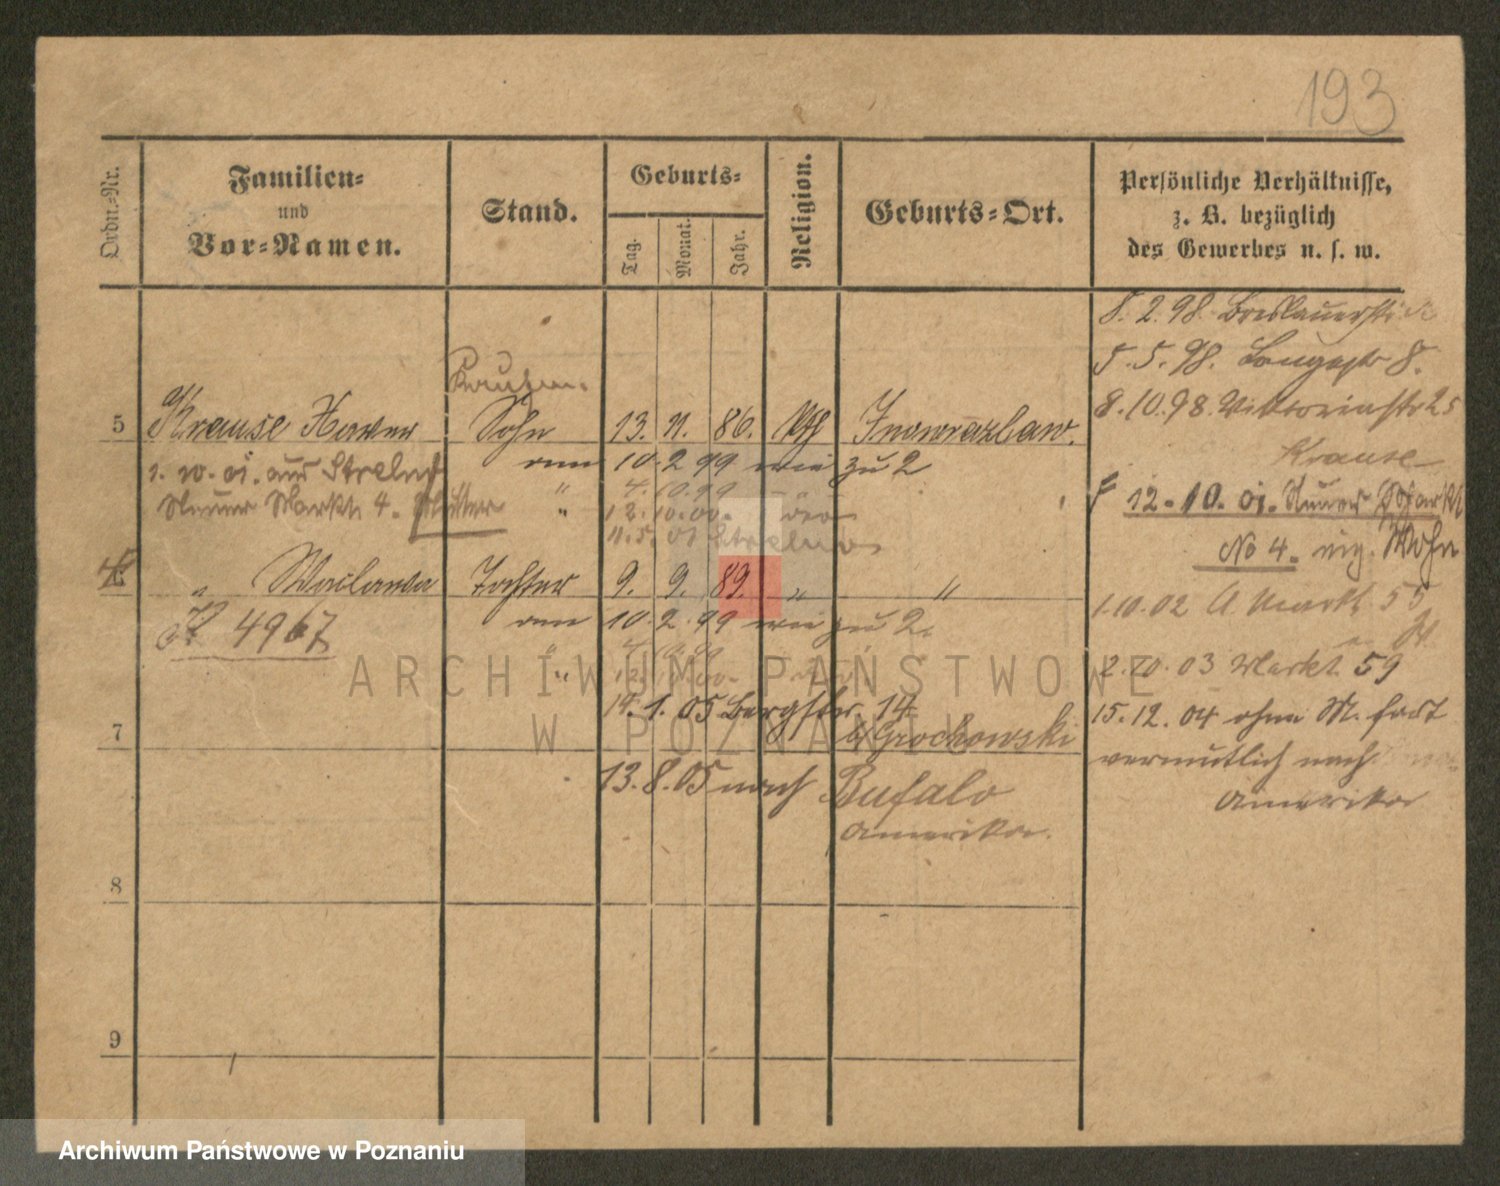 193
Ordn.-Nr.
Familien-
und
Vor-Namen.
Stand.
Geburts-
Tag.
Monat.
Jahr.
Religion.
Geburts-Ort.
Persönliche Verhältnisse,
z. B. bezüglich
des Gewerbes u. s. w.
8. 2. 98. Breslauerstr
5. 5. 98. Langestr 8.
8. 10. 98. Viktoriastr 25
5 Krause Sohn 13. 11. 86. Kth Inowrazlaw.
10. 2 99 wie zu 2
Krause
1. 10. 01. aus Strelno
4. 10. 99
Neuer Markt 4. Mutter " 12. 10. 00.
12. 10. 01. Neuer Markt
11. 5. 01 Strelno
No 4. eig. Wohn
" Waclawa Tochter 9. 9. 89. " "
1. 10. 02 A Markt 55
K 4967
10. 2 99 wie zu 2.
2. 10. 03 Markt 59
ARCHIWUM PAŃSTWOWE
W POZNANIU
14. 1. 05 Bergstr. 14
b/Grochowski
15. 12. 04 ohne M. fort
7
vermutlich nach
13. 8. 05 nach Bufalo
Amerika
Amerika.
8
9
Archiwum Państwowe w Poznaniu